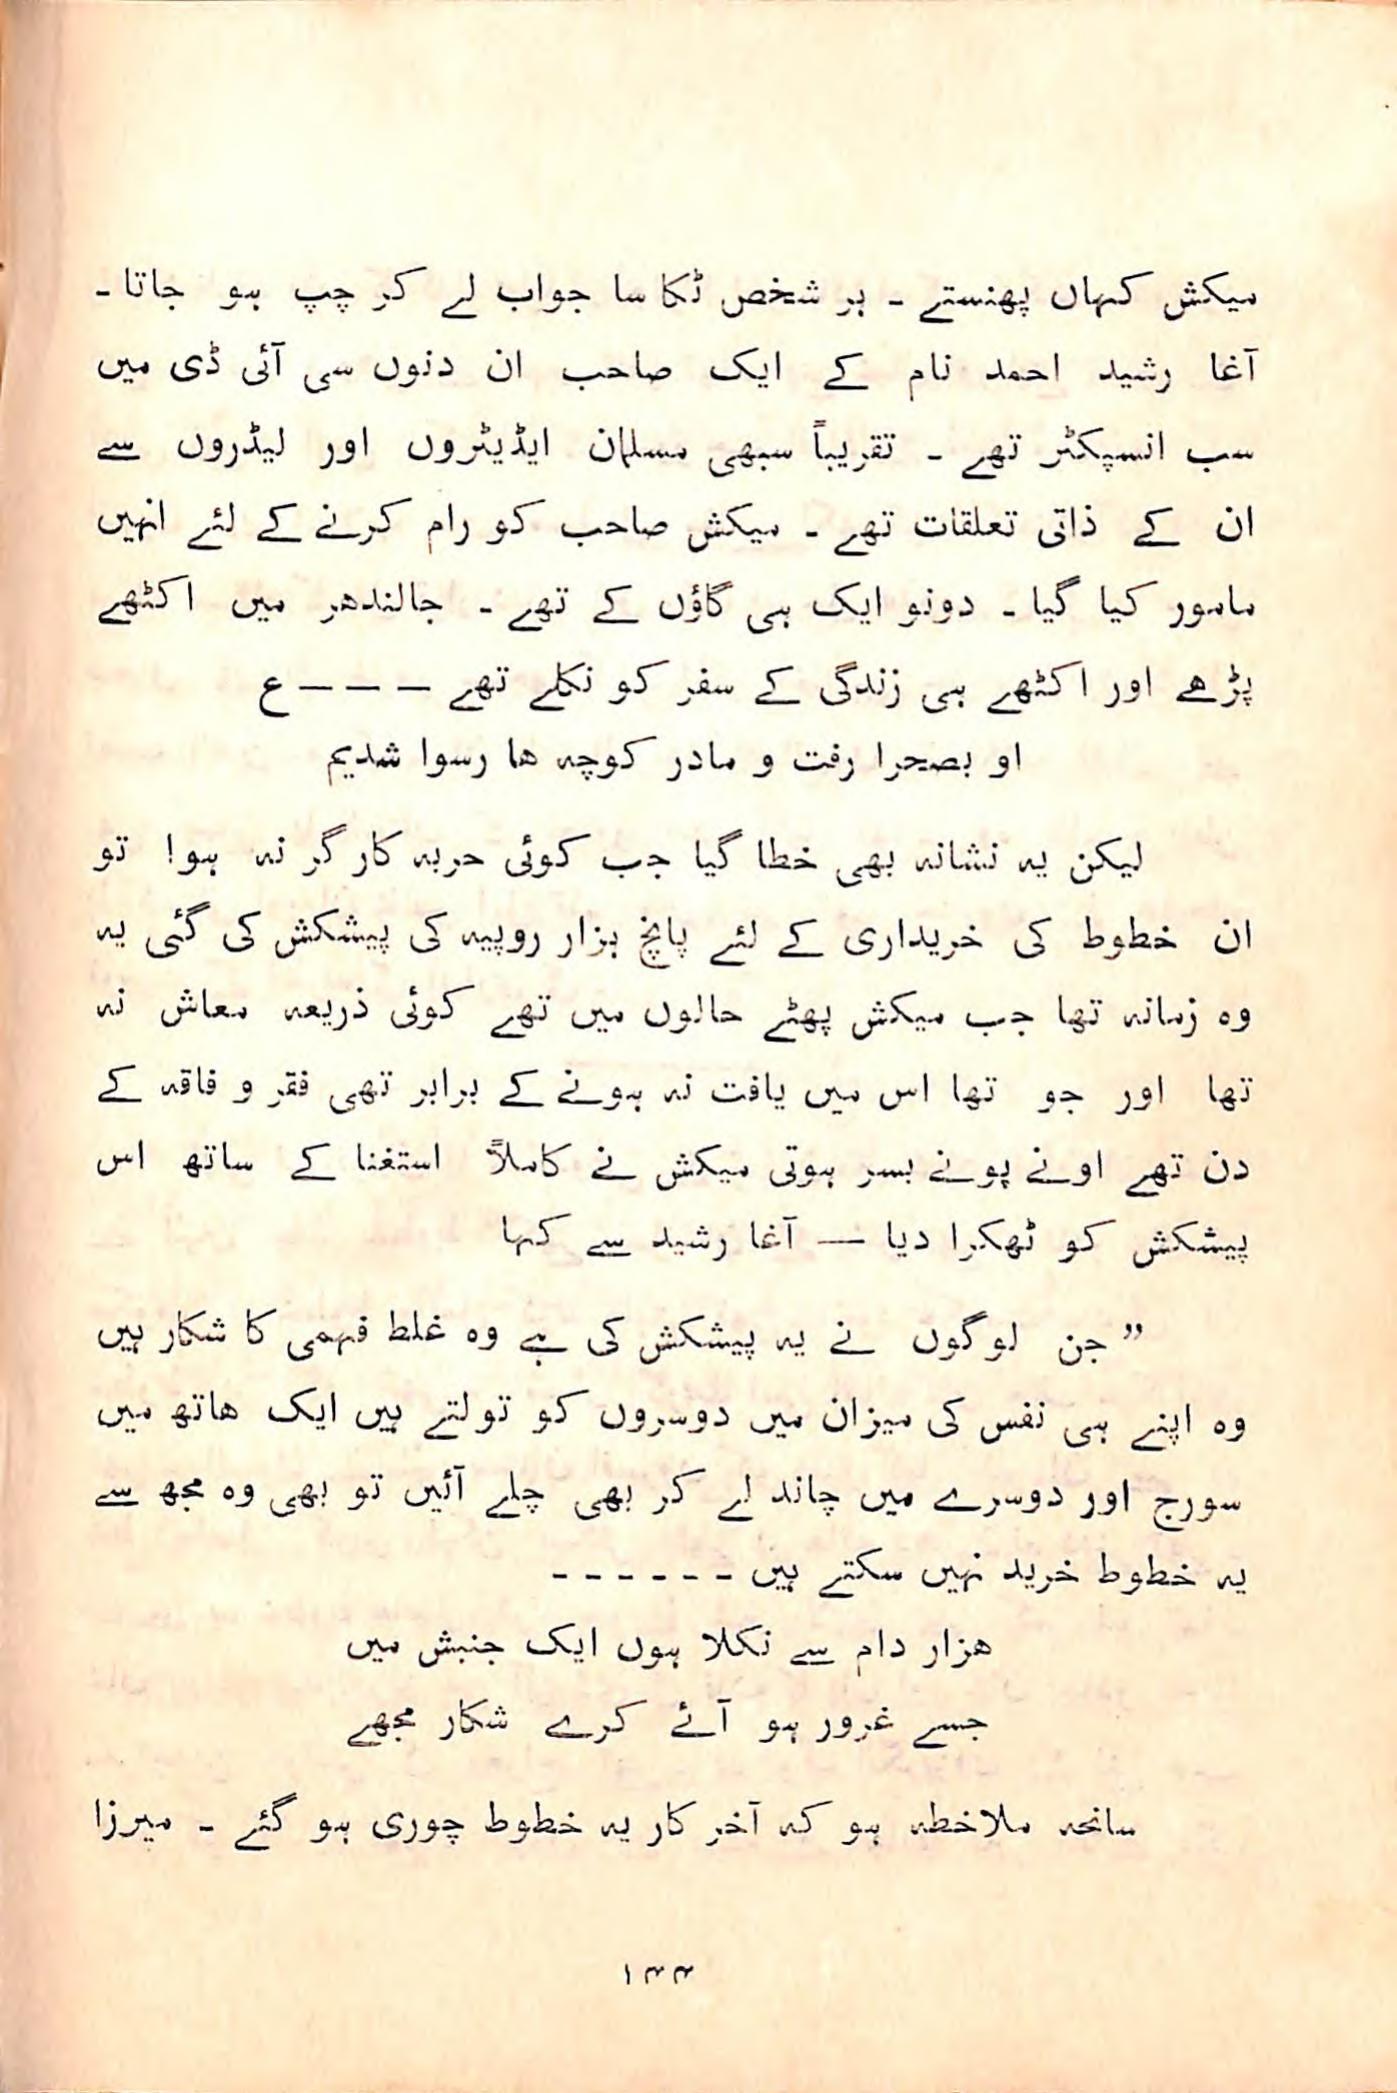 میکش کہاں پھنستے ۔ ہر شخص ٹکا سا جواب لے کر چپ ہو جاتا ۔
آغا رشید احمد نام کے ایک صاحب ان دنوں سی آئی ڈی میں
سب انسپکٹر تھے ۔ تقریباً سبھی مسلمان ایڈیٹروں اور لیڈروں سے
ان کے ذاتی تعلقات تھے ۔ میکش صاحب کو رام کرنے کے لئے انہیں
مامور کیا گیا ۔ دونو ایک ہی گاؤں کے تھے ۔ جالندھر میں اکٹھے
پڑھے اور اکٹھے ہی زندگی کے سفر کو نکلے تھے – – – ع
او بصحرا رفت و مادر کوچہ ھا رسوا شدیم
لیکن یہ نشانہ بھی خطا گیا جب کوئی حربہ کار گر نہ ہوا تو
ان خطوط کی خریداری کے لئے پانچ ہزار روپیہ کی پیشکش کی گئی یہ
وہ زمانہ تھا جب میکش پھٹے حالوں میں تھے کوئی ذریعہ معاش نہ
تھا اور جو تھا اس میں یافت نہ ہونے کے برابر تھی فقر و فاقہ کے
دن تھے اونے پونے بسر ہوتی میکش نے کاملاً استغنا کے ساتھ اس
پیشکش کو ٹھکرا دیا — آغا رشید سے کہا
” جن لوگوں نے یہ پیشکش کی ہے وہ غلط فہمی کا شکار ہیں
وہ اپنے ہی نفس کی میزان میں دوسروں کو تولتے ہیں ایک ھاتھ میں
سورج اور دوسرے میں چاند لے کر بھی چلے آئیں تو بھی وہ مجھ سے
یہ خطوط خرید نہیں سکتے ہیں - - - - - -
ھزار دام سے نکلا ہوں ایک جنبش میں
جسے غرور ہو آئے کرے شکار مجھے
سانحہ ملاخطہ ہو کہ آخر کار یہ خطوط چوری ہو گئے ۔ میرزا